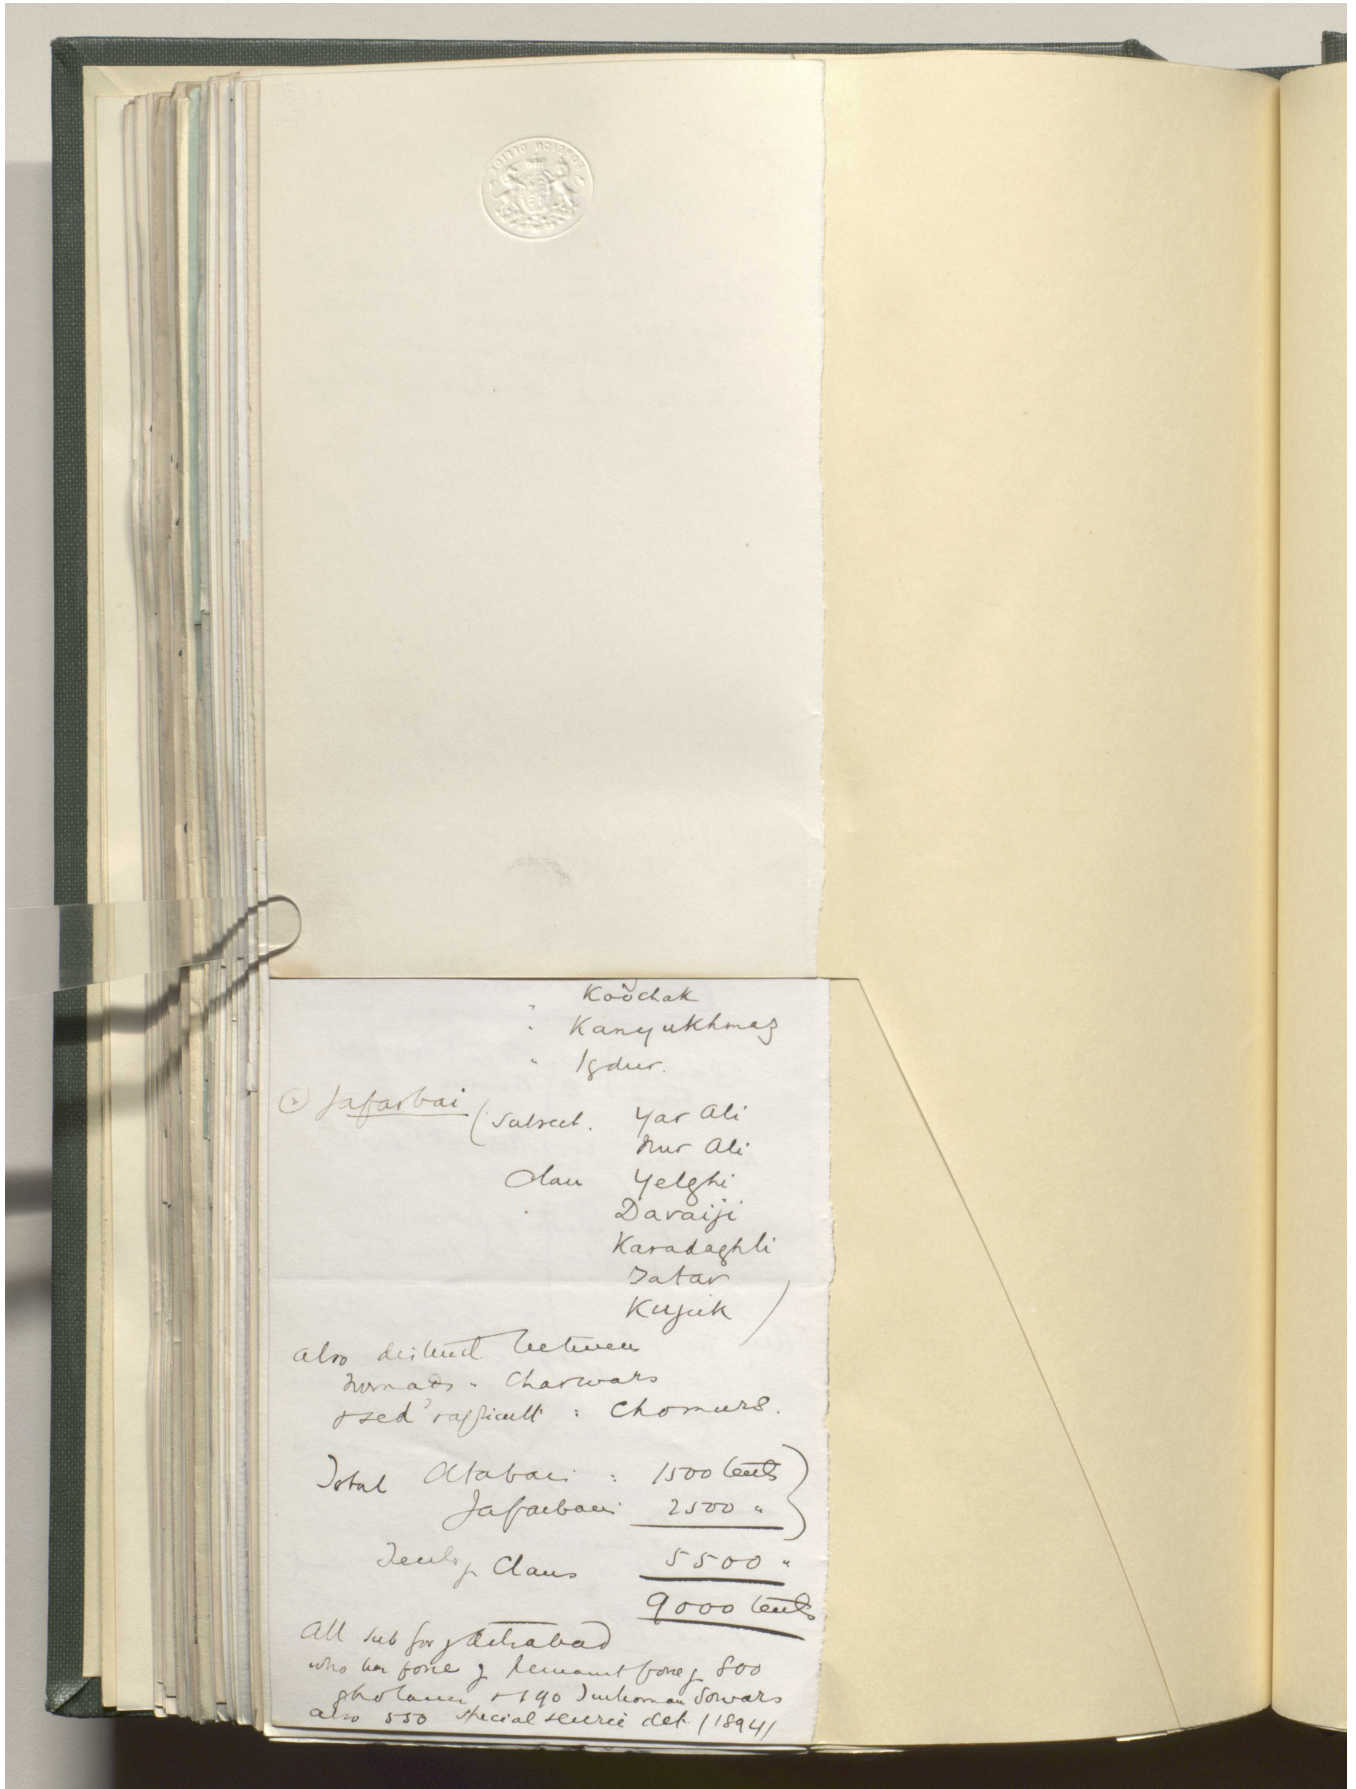 FOREIGN OFFICE
" Koochak
" Kanyukhmaz
" Igdur.
② Jafarbai (Subsect. Yar Ali
Nur Ali
Clan Yelghi
" Daraiji
Karadaghli
Tatar
Kujuk )
Also distinct between
Nomads = Charwars
& sed = Chomurs.
Total Atabai : 1500 tents
Jafarbai 2500 "
Tents of Clans 5500 "
9000 tents
All sub Gov of Astrabad
who has force of permanent force of 800
gholams + 190 Turkoman Sowars
also 550 special service det (1894)